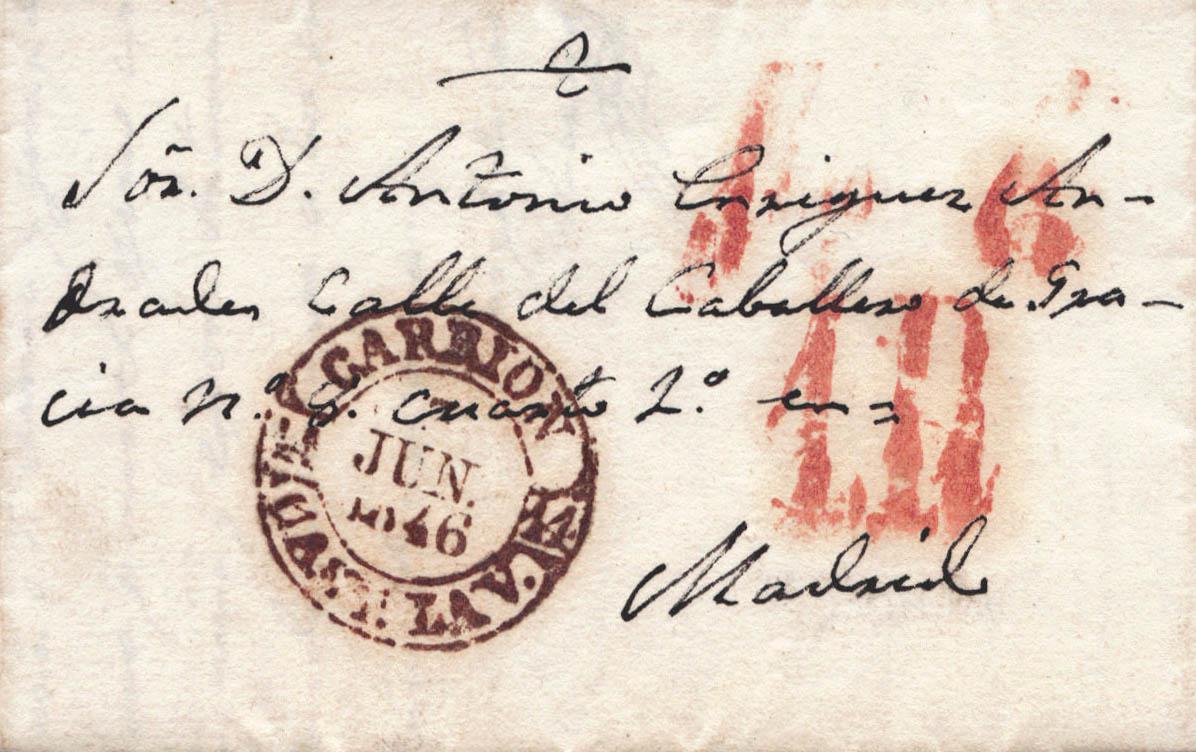 Sor. D. Antonio Enriquez An-
drades Calle del Caballero de Gra-
cia nº. 8. cuarto 2º. en
Madrid
CARRION
JUN.
1846